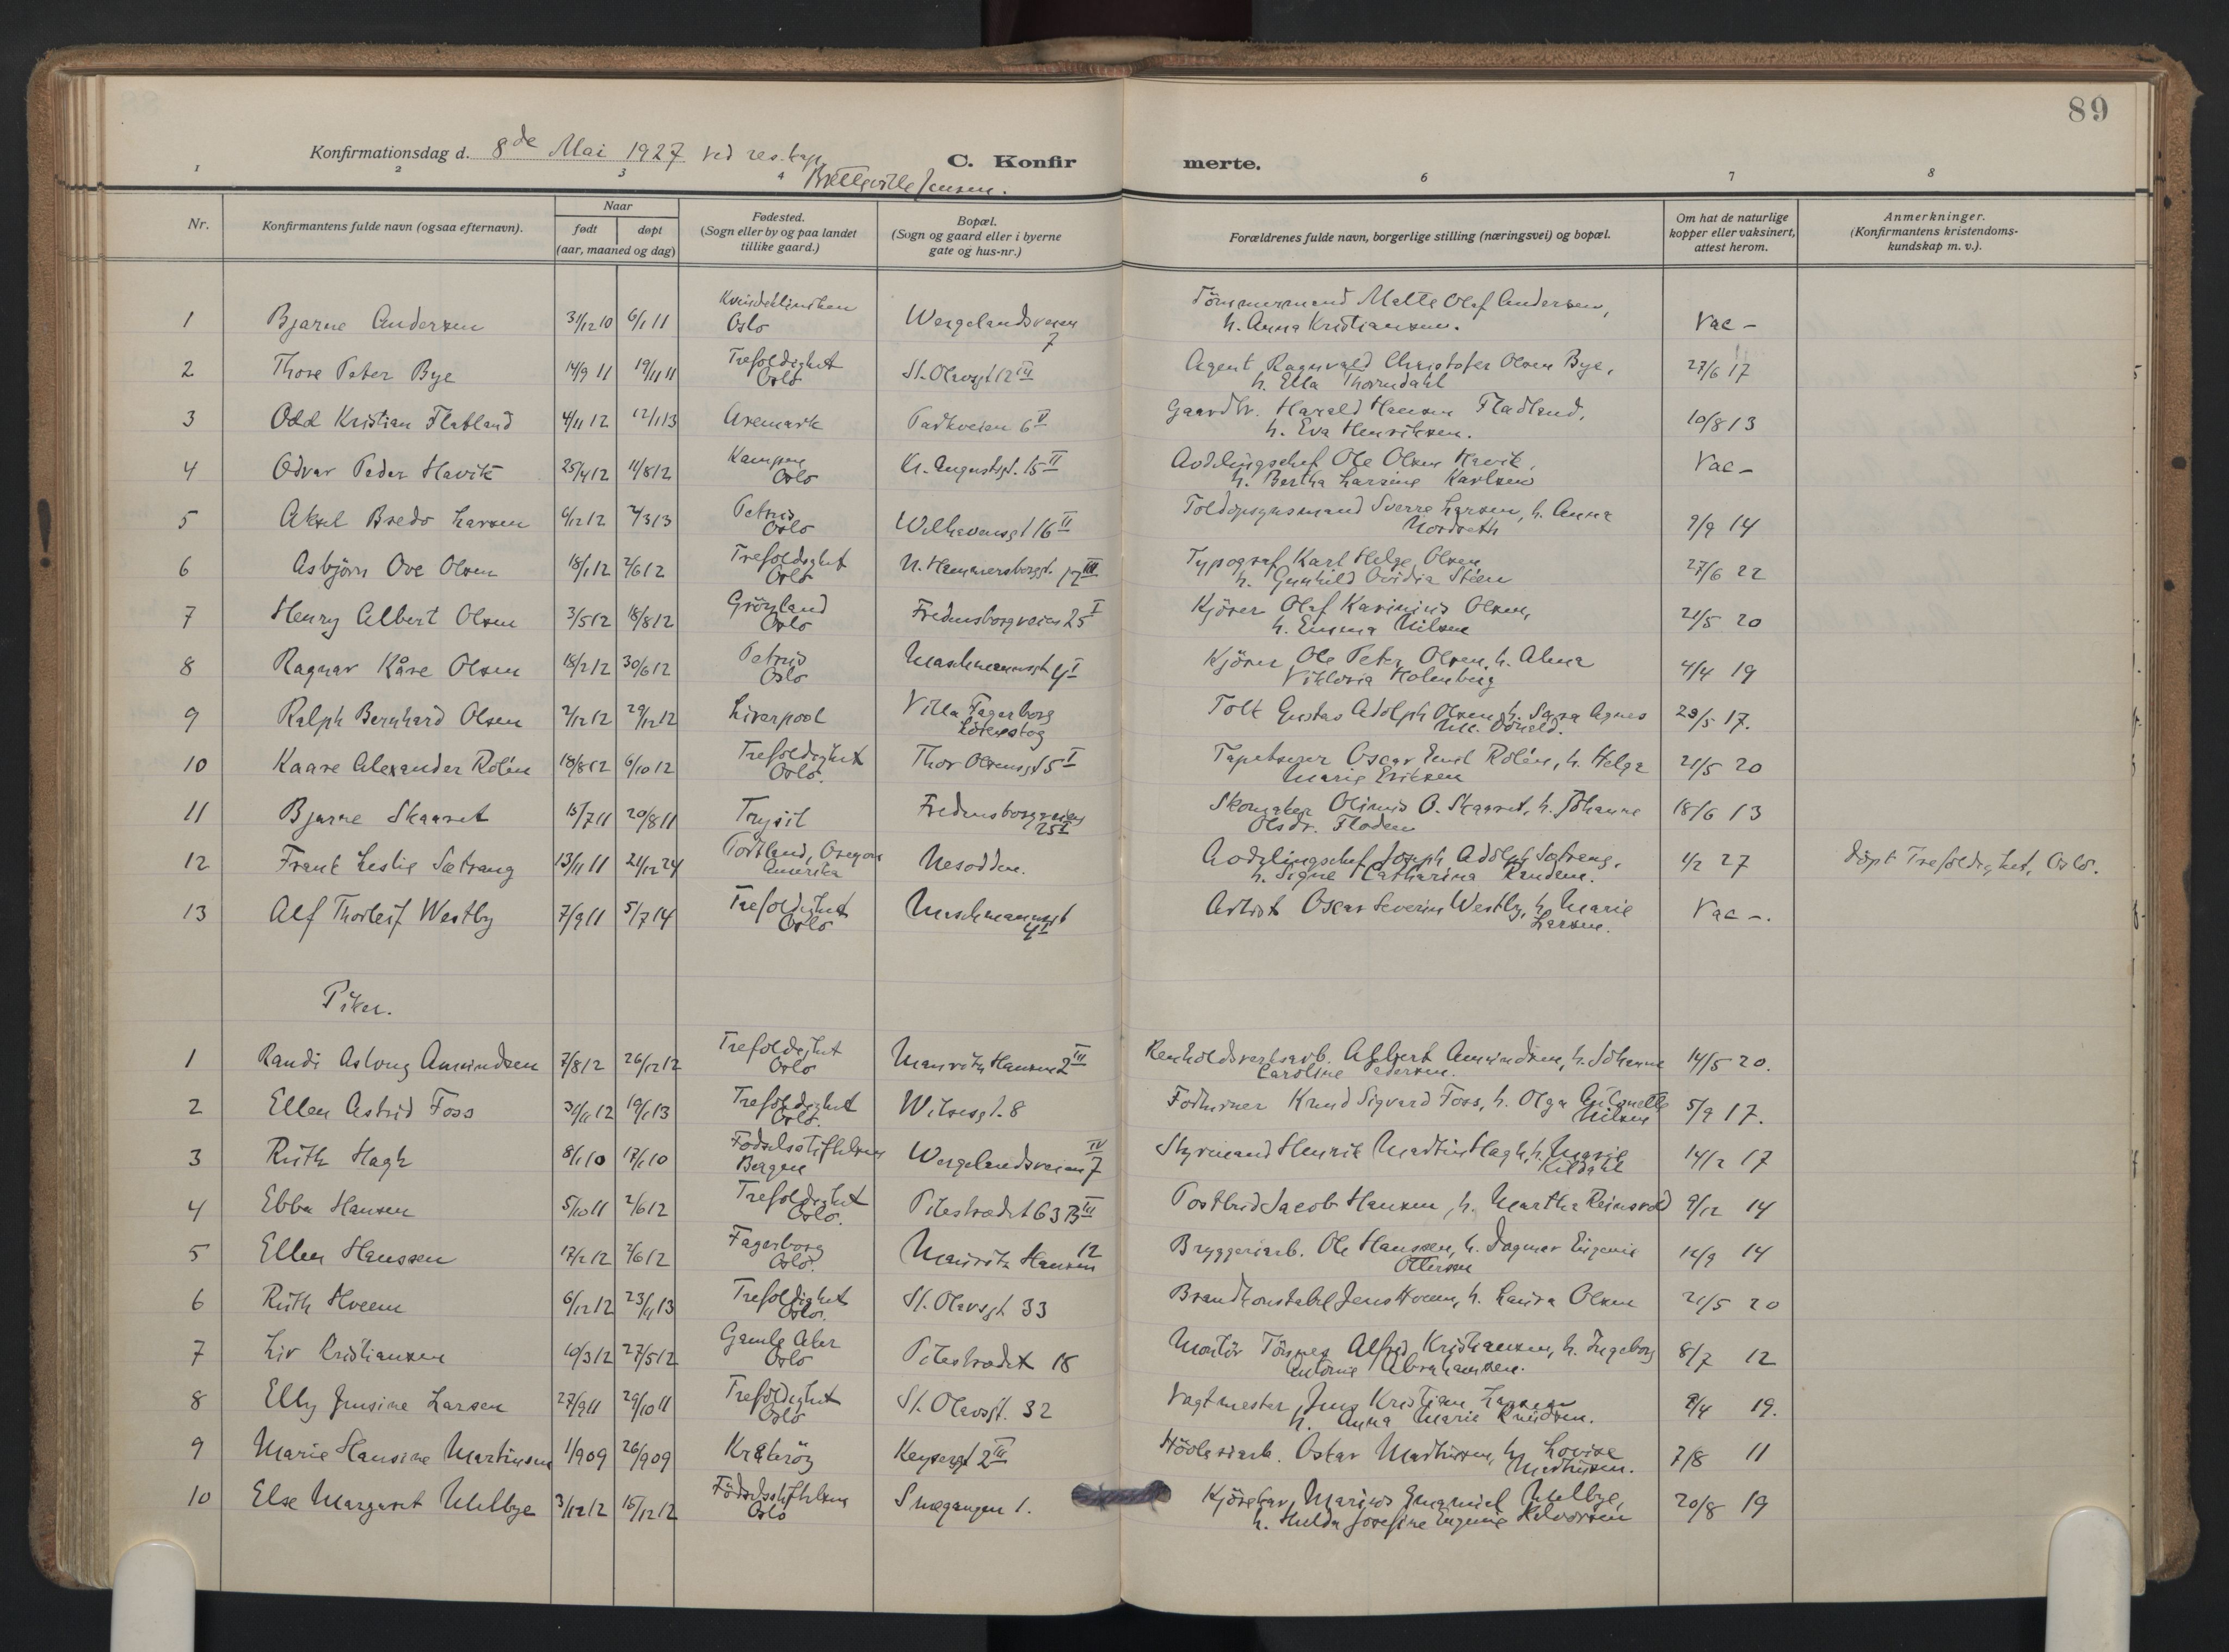 89
Konfirmationsdag d. 8de Mai 1927 ved res. kap.
C. Konfirmerte.
1 2 3 4 6 7 8
Nr.
Konfirmantens fulde navn (ogsaa efternavn).
Naar
født døpt
(aar, maaned og dag)
Fødested.
(Sogn eller by og paa landet
tillike gaard.)
Bopæl.
(Sogn og gaard eller i byerne
gate og hus-nr.)
Forældrenes fulde navn, borgerlige stilling (næringsvei) og bopæl.
Om hat de naturlige
kopper eller vaksinert,
attest herom.
Anmerkninger.
(Konfirmantens kristendoms-
kundskap m. v.).
1 Bjarne Andersen 31/12 10 6/1 11 Kvindekliniken Oslo Wergelandsveien 7 Tömmermand Olaf Andersen, h. Anna Kristiansen. Vac –
2 Thore Peter Bye 14/9 11 19/11 11 Trefoldighet Oslo St. Olavsgt 12 III Agent Ragnvald Christofer Olsen Bye, h. Ella Thorndahl 27/6 17
3 Odd Kristian Flatland 4/11 12 12/1 13 Aremark Parkveien 6 V Gaardbr. Harald Hansen Fladland, h. Eva Henriksen. 10/8 13
4 Odvar Peder Havik 25/4 12 11/8 12 Kampen Oslo Kr. Augustsgt. 15 II Avdelingschef Ole Olsen Havik, h. Bertha Larsine Karlsen Vac –
5 Aksel Bredo Larsen 6/12 12 2/3 13 Petrus Oslo Welhavensgt 16 II Toldopsynsmand Sverre Larsen, h. Anna Nordseth 9/9 14
6 Asbjörn Ove Olsen 18/1 12 2/6 12 Trefoldighet Oslo N. Hammersborggt. III Typograf Karl Helge Olsen, h. Gunhild Ovidia Stéen 27/6 22
7 Henry Albert Olsen 3/5 12 18/8 12 Grönland Oslo Fredensborgveien 25 I Kjörer Olaf Karinius Olsen, h. Emma Nilsen 21/5 20
8 Ragnar Kåre Olsen 18/2 12 30/6 12 Petrus Oslo Maschmannsgt 4 I Kjörer Ole Peter Olsen, h. Alma Viktoria Holmberg 4/4 19
9 Ralph Bernhard Olsen 2/12 12 29/12 12 Liverpool Villa Fagerborg Tolk Gustav Adolph Olsen, h. Sara Agnes 23/5 17.
10 Kaare Alexander Rolén 18/8 12 6/10 12 Trefoldighet Oslo. Thor Olsensgt 5 I Tapetserer Oscar Emil Rolén, h. Helga Marie Eriksen 21/5 20
11 Bjarne Skaaret 15/7 11 20/8 11 Trysil Fredensborgveien 25 I Skomaker Olinus O. Skaaret, h. Johanne Olsdr. Floden 18/6 13
12 Frank Leslie Sætrang 13/11 11 21/12 24 Portland, Oregon Amerika Nesodden. Avdelingschef Joseph Adolph Sætrang, h. Signe Catharina Randem. 1/2 27 döpt Trefoldighet, Oslo.
13 Alf Thorleif Westby 7/9 11 5/7 14 Trefoldighet Oslo Maschmannsgt 4 I Artist Oscar Severin Westby, h. Marie Larsen. Vac –.
Piker.
1 Randi Aslaug Amundsen 7/8 12 26/12 12 Trefoldighet Oslo Mauritz Hansens 2 III Renholdsverksarb. Albert Amundsen, h. Johanne Caroline Pedersen. 14/5 20.
2 Ellen Astrid Foss 30/11 12 19/1 13 Trefoldighet Oslo. Wilsesgt. 8 Knud Sigvard Foss, h. Olga Antonette Nilsen 5/9 17.
3 Ruth Hagh 8/1 10 17/1 10 Fødselsstiftelsen Bergen Wergelandsveien 7 IV Styrmand Henrik Martin Hagh, h. Marie Kildahl 14/2 17
4 Ebba Hansen 5/10 11 2/6 12 Trefoldighet Oslo. Pilestrædet 63 B III Postbud Jacob Hansen, h. Martha Reinsvold 9/12 14
5 Ellen Hanssen 17/2 12 2/6 12 Fagerborg Oslo. Mauritz Hansen 12 Bryggeriarb. Ole Hanssen, h. Dagmar Eugenie Ottersen 12/9 14
6 Ruth Hveem 6/12 12 23/11 13 Trefoldighet Oslo. St. Olavsgt 33 Brandkonstabel Jens Hveem, h. Laura Olsen 21/5 20
7 Liv Kristiansen 10/3 12 27/5 12 Gamle Aker Oslo Pilestrædet 18 Montör Tönnes Alfred Kristiansen, h. Ingeborg Antonie Abrahamsen. 8/7 12
8 Elly Jensine Larsen 27/9 11 29/10 11 Trefoldighet Oslo St. Olavsgt. 32 Vagtmester Jens Kristian Larsen h. Anna Marie Knudsen. 8/4 19.
9 Marie Hansine Martinsen 1/9 09 26/9 09 Kråkeröy Keysersgt 2 III Höuleriarb. Oskar Martinsen, h. Lovise Mathisen. 7/8 11
10 Else Margaret Melbye 3/12 12 15/12 12 Födselsstiftelsen Oslo Smegangen 1. Kjörekar, Marius Emanuel Melbye, h. Hulda Josefine Eugenie Halvorsen 20/8 19